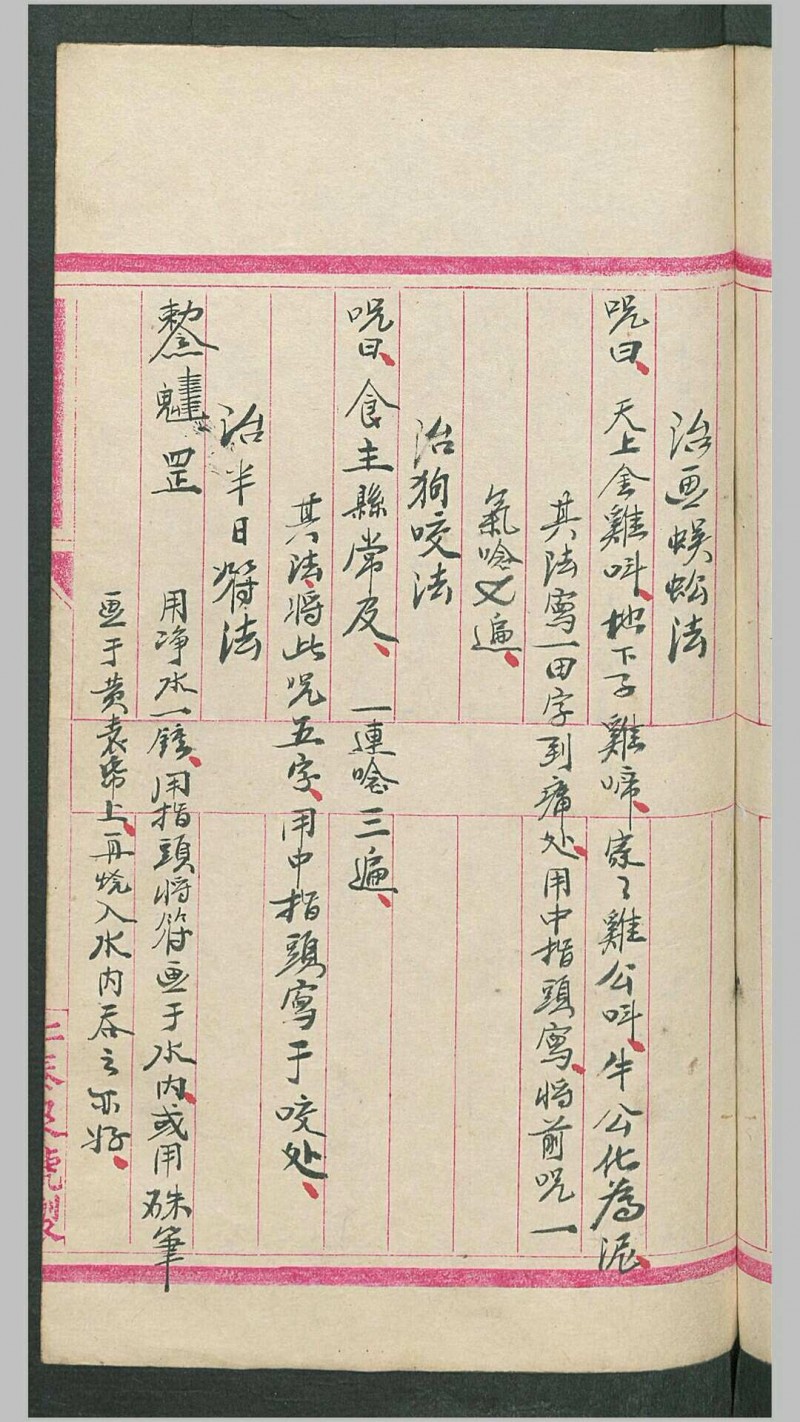 治画蜈蚣法
咒曰、天上金雞叫、地下子雞啼、家〻雞公叫、牛公化為泥、
其法寫一田字到痛处、用中指頭寫、将前咒一
氣唸乂遍、
治狗咬法
咒曰、食主縣常及、一連唸三遍、
其法、将此咒五字、用中指頭寫于咬处、
治半日 法
罡 用净水一 、用指頭将符画于水内、或用硃筆
画于黄 上、再烧入水内吞之亦好、